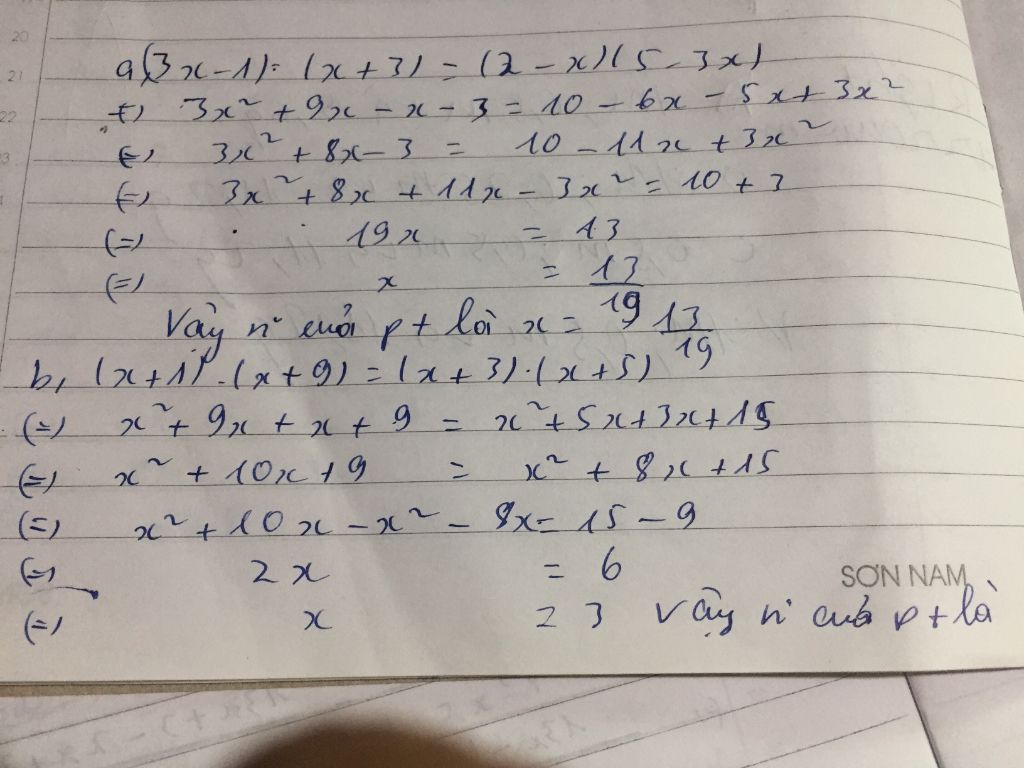 20
21
22
a, (3x-1). (x+3) = (2-x)(5-3x)
(=) 3x² + 9x - x - 3 = 10 - 6x - 5x + 3x²
(=) 3x² + 8x - 3 = 10 - 11x + 3x²
(=) 3x² + 8x + 11x - 3x² = 10 + 3
(=) 19x = 13
(=) x = 13/19
Vậy n⁰ của pt là x = 13/19
b, (x+1).(x+9) = (x+3).(x+5)
(=) x² + 9x + x + 9 = x² + 5x + 3x + 15
(=) x² + 10x + 9 = x² + 8x + 15
(=) x² + 10x - x² - 8x = 15 - 9
(=) 2x = 6
SƠN NAM
(=) x = 3 Vậy n⁰ của pt là